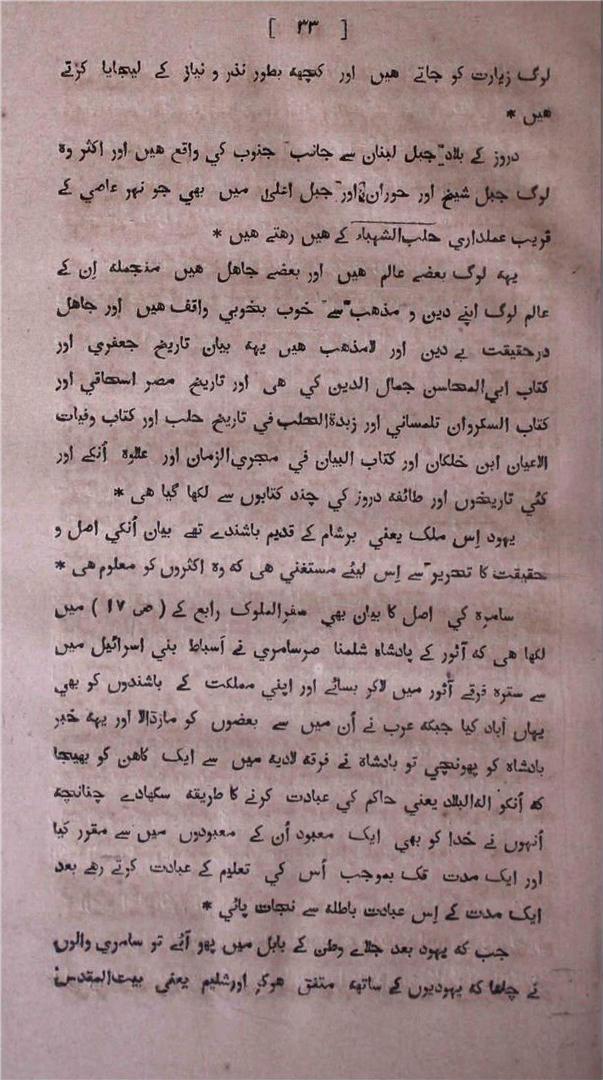 [ ٣٣ ]
لوگ زیارت کو جاتے هیں اور کچهه بطور نذر و نیاز کے لیجایا کرتے
هیں *
دروز کے بلاد جبل لبنان سے جانب جنوب کي واقع هیں اور اکثر وه
لوگ جبل شیخ اور حوران اور جبل اعلیٰ میں بهي جو نهر عاصي کے
قریب عملداري حلب الشهباء کے هیں رهتے هیں *
یهه لوگ بعضے عالم هیں اور بعضے جاهل هیں منجمله اِن کے
عالم لوگ اپنے دین و مذهب سے خوب بخوبي واقف هیں اور جاهل
درحقیقت بے دین اور لامذهب هیں یهه بیان تاریخ جعفري اور
کتاب ابي المحاسن جمال الدین کي هی اور تاریخ مصر اسحاقي اور
کتاب السکروان تلمساني اور زبدة الحلب في تاریخ حلب اور کتاب وفیات
الاعیان ابن خلکان اور کتاب البیان في مجري الزمان اور علاوه اُنکے اور
کئي تاریخوں اور طائفه دروز کي چند کتابوں سے لکها گیا هی *
یهود اِس ملک یعني برشام کے قدیم باشندے تهے بیان اُنکي اصل و
حقیقت کا تحریر سے اِس لیئے مستغني هی که وه اکثروں کو معلوم هی *
سامره کي اصل کا بیان بهي سفرالملوک رابع کے ( ص ١٧ ) میں
لکها هی که آثور کے پادشاه شلمنا صرسامري نے اَسباط بني اسرائیل میں
سے ستره فرقے آثور میں لاکر بسائے اور اپني مملکت کے باشندوں کو بهي
یهاں آباد کیا جبکه عرب نے اُن میں سے بعضوں کو مارڈالا اور یهه خبر
بادشاه کو پهونچي تو بادشاه نے فرقه لادیه میں سے ایک کاهن کو بهیجا
که اُنکو اله البلاد یعني حاکم کي عبادت کرنے کا طریقه سکهادے چنانچه
اُنهوں نے خدا کو بهي ایک معبود اُن کے معبودوں میں سے مقرر کیا
اور ایک مدت تک بموجب اُس کي تعلیم کے عبادت کرتے رهے بعد
ایک مدت کے اِس عبادت باطله سے نجات پائي *
جب که یهود بعد جلاے وطن کے بابل میں پهر آئے تو سامري والوں
نے چاها که یهودیوں کے ساتهه متفق هوکر اورشلیم یعني بیت المقدس